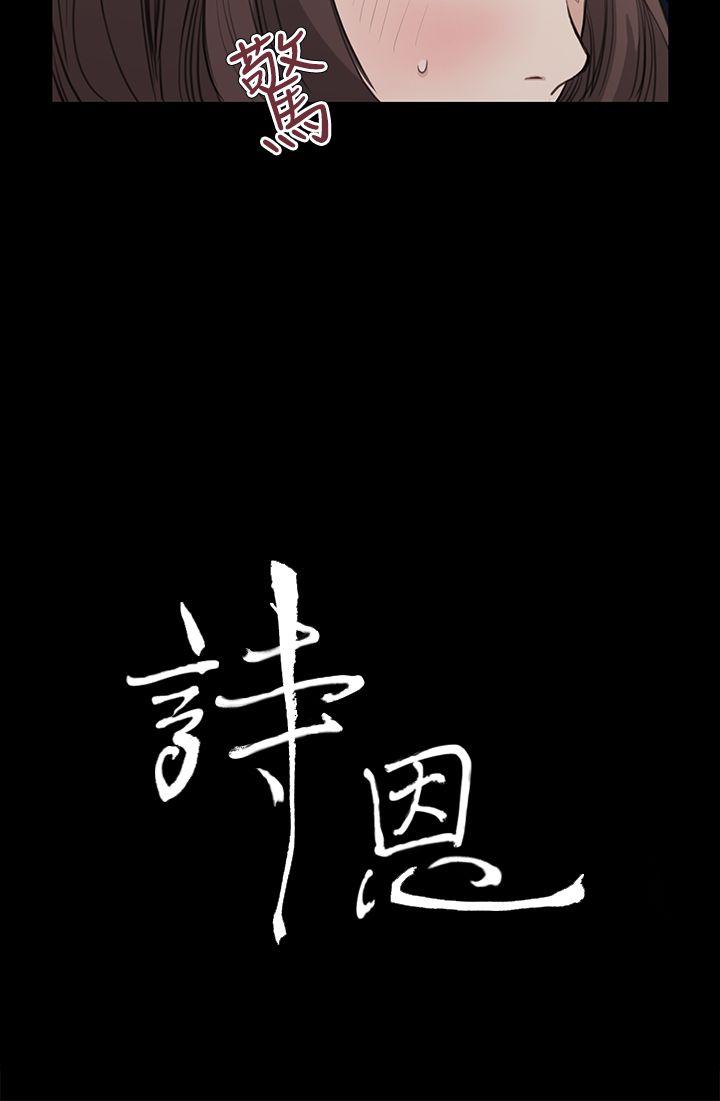 驚
詩恩